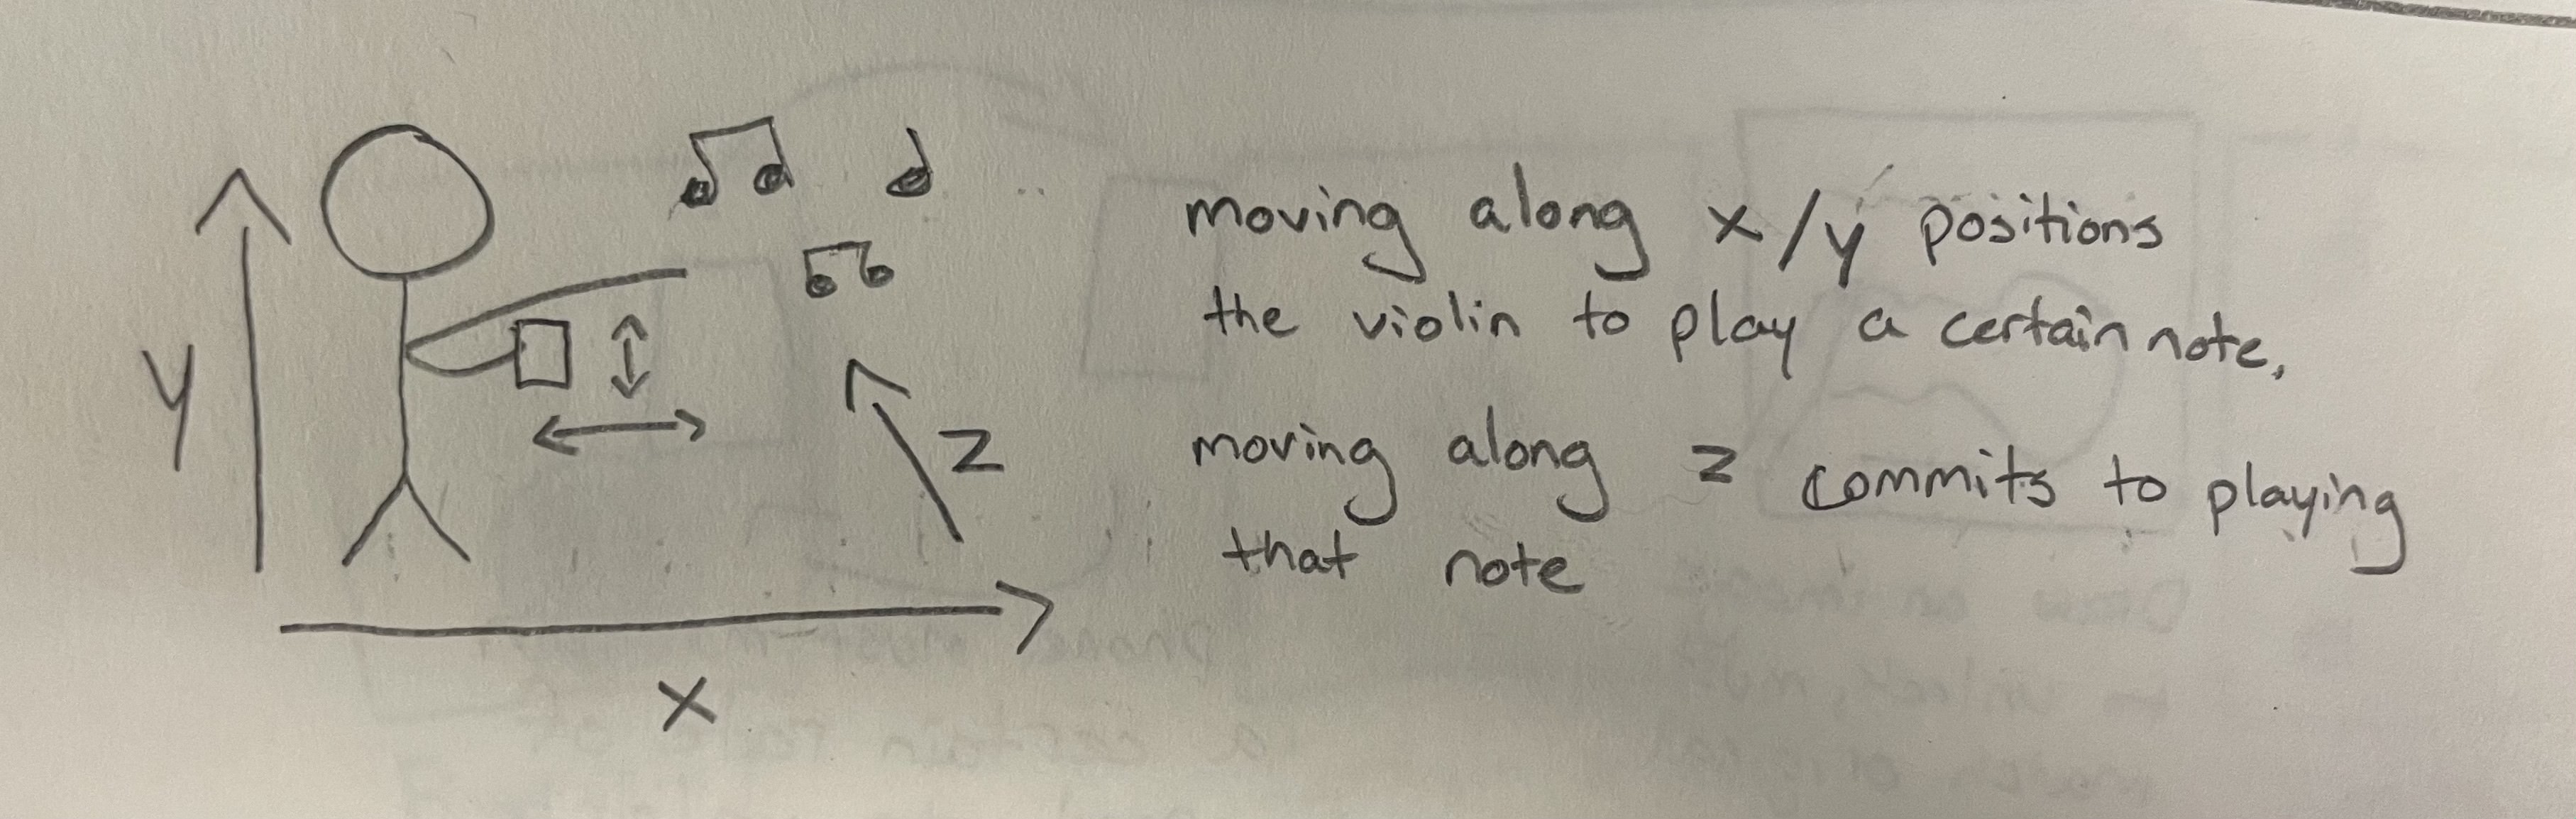 moving along x/y positions
the violin to play a certain note.
moving along z commits to playing
that note
y
z
x